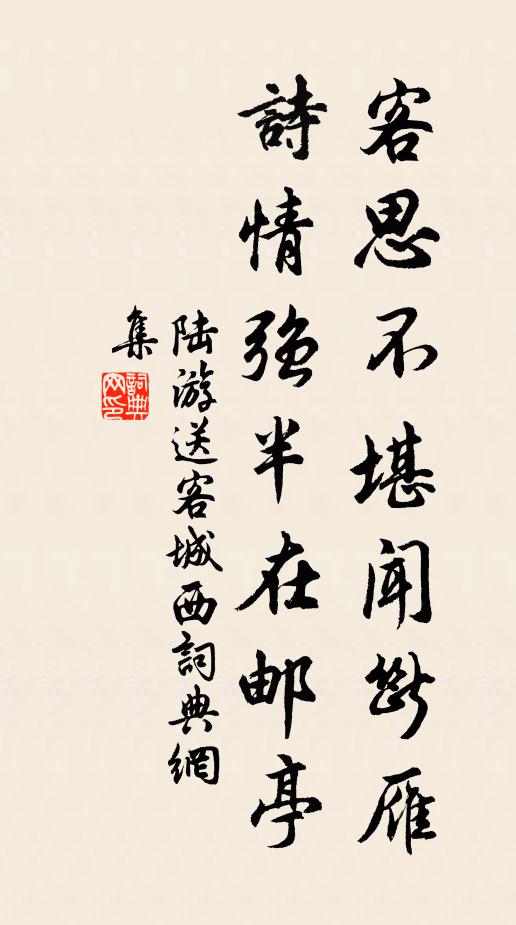 客思不堪聞断雁
詩情强半在邮亭
陆游送客城西詞典網
集
詞典网印